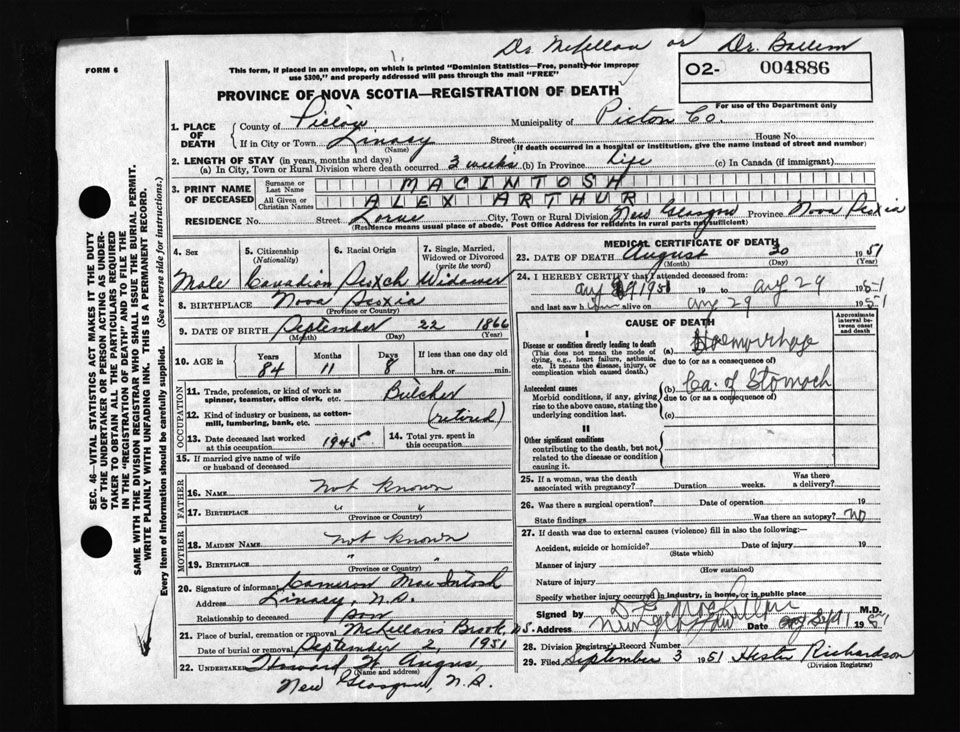 Dr. McKellar or Dr. Ballem
FORM 6
This form, if placed in an envelope, on which is printed "Dominion Statistics—Free, penalty for improper
use $300," and properly addressed will pass through the mail "FREE"
O2- 004886
For use of the Department only
PROVINCE OF NOVA SCOTIA—REGISTRATION OF DEATH
1. PLACE OF DEATH
County of Pictou Municipality of Picton Co.
If in City or Town Linacy Street House No.
(Name) (If death occurred in a hospital or institution, give the name instead of street and number)
2. LENGTH OF STAY (in years, months and days)
(a) In City, Town or Rural Division where death occurred 3 weeks (b) In Province Life (c) In Canada (if immigrant)
3. PRINT NAME OF DECEASED
Surname or Last Name MACINTOSH
All Given or Christian Names ALEX ARTHUR
RESIDENCE No. Street Lorne City, Town or Rural Division New Glasgow Province Nova Scotia
(Residence means usual place of abode. Post Office Address for residents in rural parts not sufficient)
4. Sex 5. Citizenship (Nationality) 6. Racial Origin 7. Single, Married, Widowed or Divorced (write the word)
Male Canadian Scotch Widower
8. BIRTHPLACE Nova Scotia
(Province or Country)
9. DATE OF BIRTH September 22 1866
(Month) (Day) (Year)
10. AGE in Years Months Days If less than one day old
84 11 8 hrs. or min.
OCCUPATION
11. Trade, profession, or kind of work as spinner, teamster, office clerk, etc. Butcher
12. Kind of industry or business, as cotton-mill, lumbering, bank, etc. (retired)
13. Date deceased last worked at this occupation 1945 14. Total yrs. spent in this occupation
15. If married give name of wife or husband of deceased
FATHER
16. NAME Not Known
17. BIRTHPLACE " "
(Province or Country)
MOTHER
18. MAIDEN NAME Not Known
19. BIRTHPLACE " "
(Province or Country)
20. Signature of informant Cameron MacIntosh
Address Linacy, N.S.
Relationship to deceased Son
21. Place of burial, cremation or removal McLellans Brook, N.S.
Date of burial or removal September 2, 1951
22. UNDERTAKER Howard W. Angus,
(Name and address)
New Glasgow, N.S.
MEDICAL CERTIFICATE OF DEATH
23. DATE OF DEATH August 30 1951
(Month) (Day) (Year)
24. I HEREBY CERTIFY that I attended deceased from
Aug 1951 19 to Aug 29 1951
and last saw him alive on Aug 29 1951
CAUSE OF DEATH
Approximate interval between onset and death
I
Disease or condition directly leading to death (a) Haemorrhage
(This does not mean the mode of dying, e.g., heart failure, asthenia, etc. It means the disease, injury, or complication which caused death.)
due to (or as a consequence of)
Antecedent causes (b) Ca. of Stomach
Morbid conditions, if any, giving rise to the above cause, stating the underlying condition last.
due to (or as a consequence of)
(c)
II
Other significant conditions contributing to the death, but not related to the disease or condition causing it.
25. If a woman, was the death associated with pregnancy? Duration weeks. Was there a delivery?
26. Was there a surgical operation? Date of operation 19
State findings Was there an autopsy? No
27. If death was due to external causes (violence) fill in also the following:—
Accident, suicide or homicide? Date of injury 19
(State which)
Manner of injury
(How sustained)
Nature of injury
Specify whether injury occurred in industry, in home, or in public place
Signed by D F McKellar M.D.
Address New Glasgow Date Sept 1 1951
28. Division Registrar's Record Number
29. Filed September 3 1951 Hester Richardson
(Division Registrar)
SEC. 46—VITAL STATISTICS ACT MAKES IT THE DUTY
OF THE UNDERTAKER OR PERSON ACTING AS UNDER-
TAKER TO OBTAIN ALL THE PARTICULARS REQUIRED
IN THE "REGISTRATION OF DEATH" AND TO FILE THE
SAME WITH THE DIVISION REGISTRAR WHO SHALL ISSUE THE BURIAL PERMIT.
WRITE PLAINLY WITH UNFADING INK. THIS IS A PERMANENT RECORD.
Every item of information should be carefully supplied. (See reverse side for instructions.)